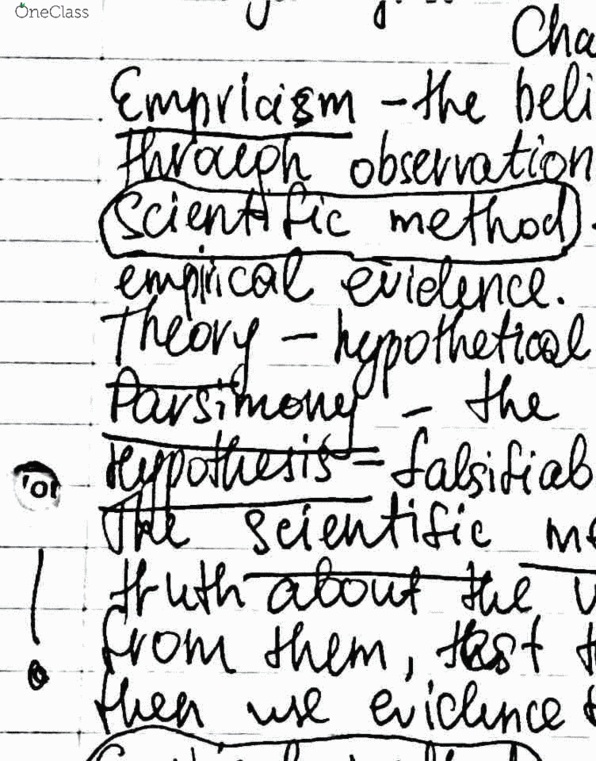 OneClass
Cha
Empricism - the beli
through observation
scientific method.
empirical evidence.
Theory - hypothetical
Parsimony - the
Hypothesis = falsifiab
The scientific me
truth about the
from them, test t
then use evidence t